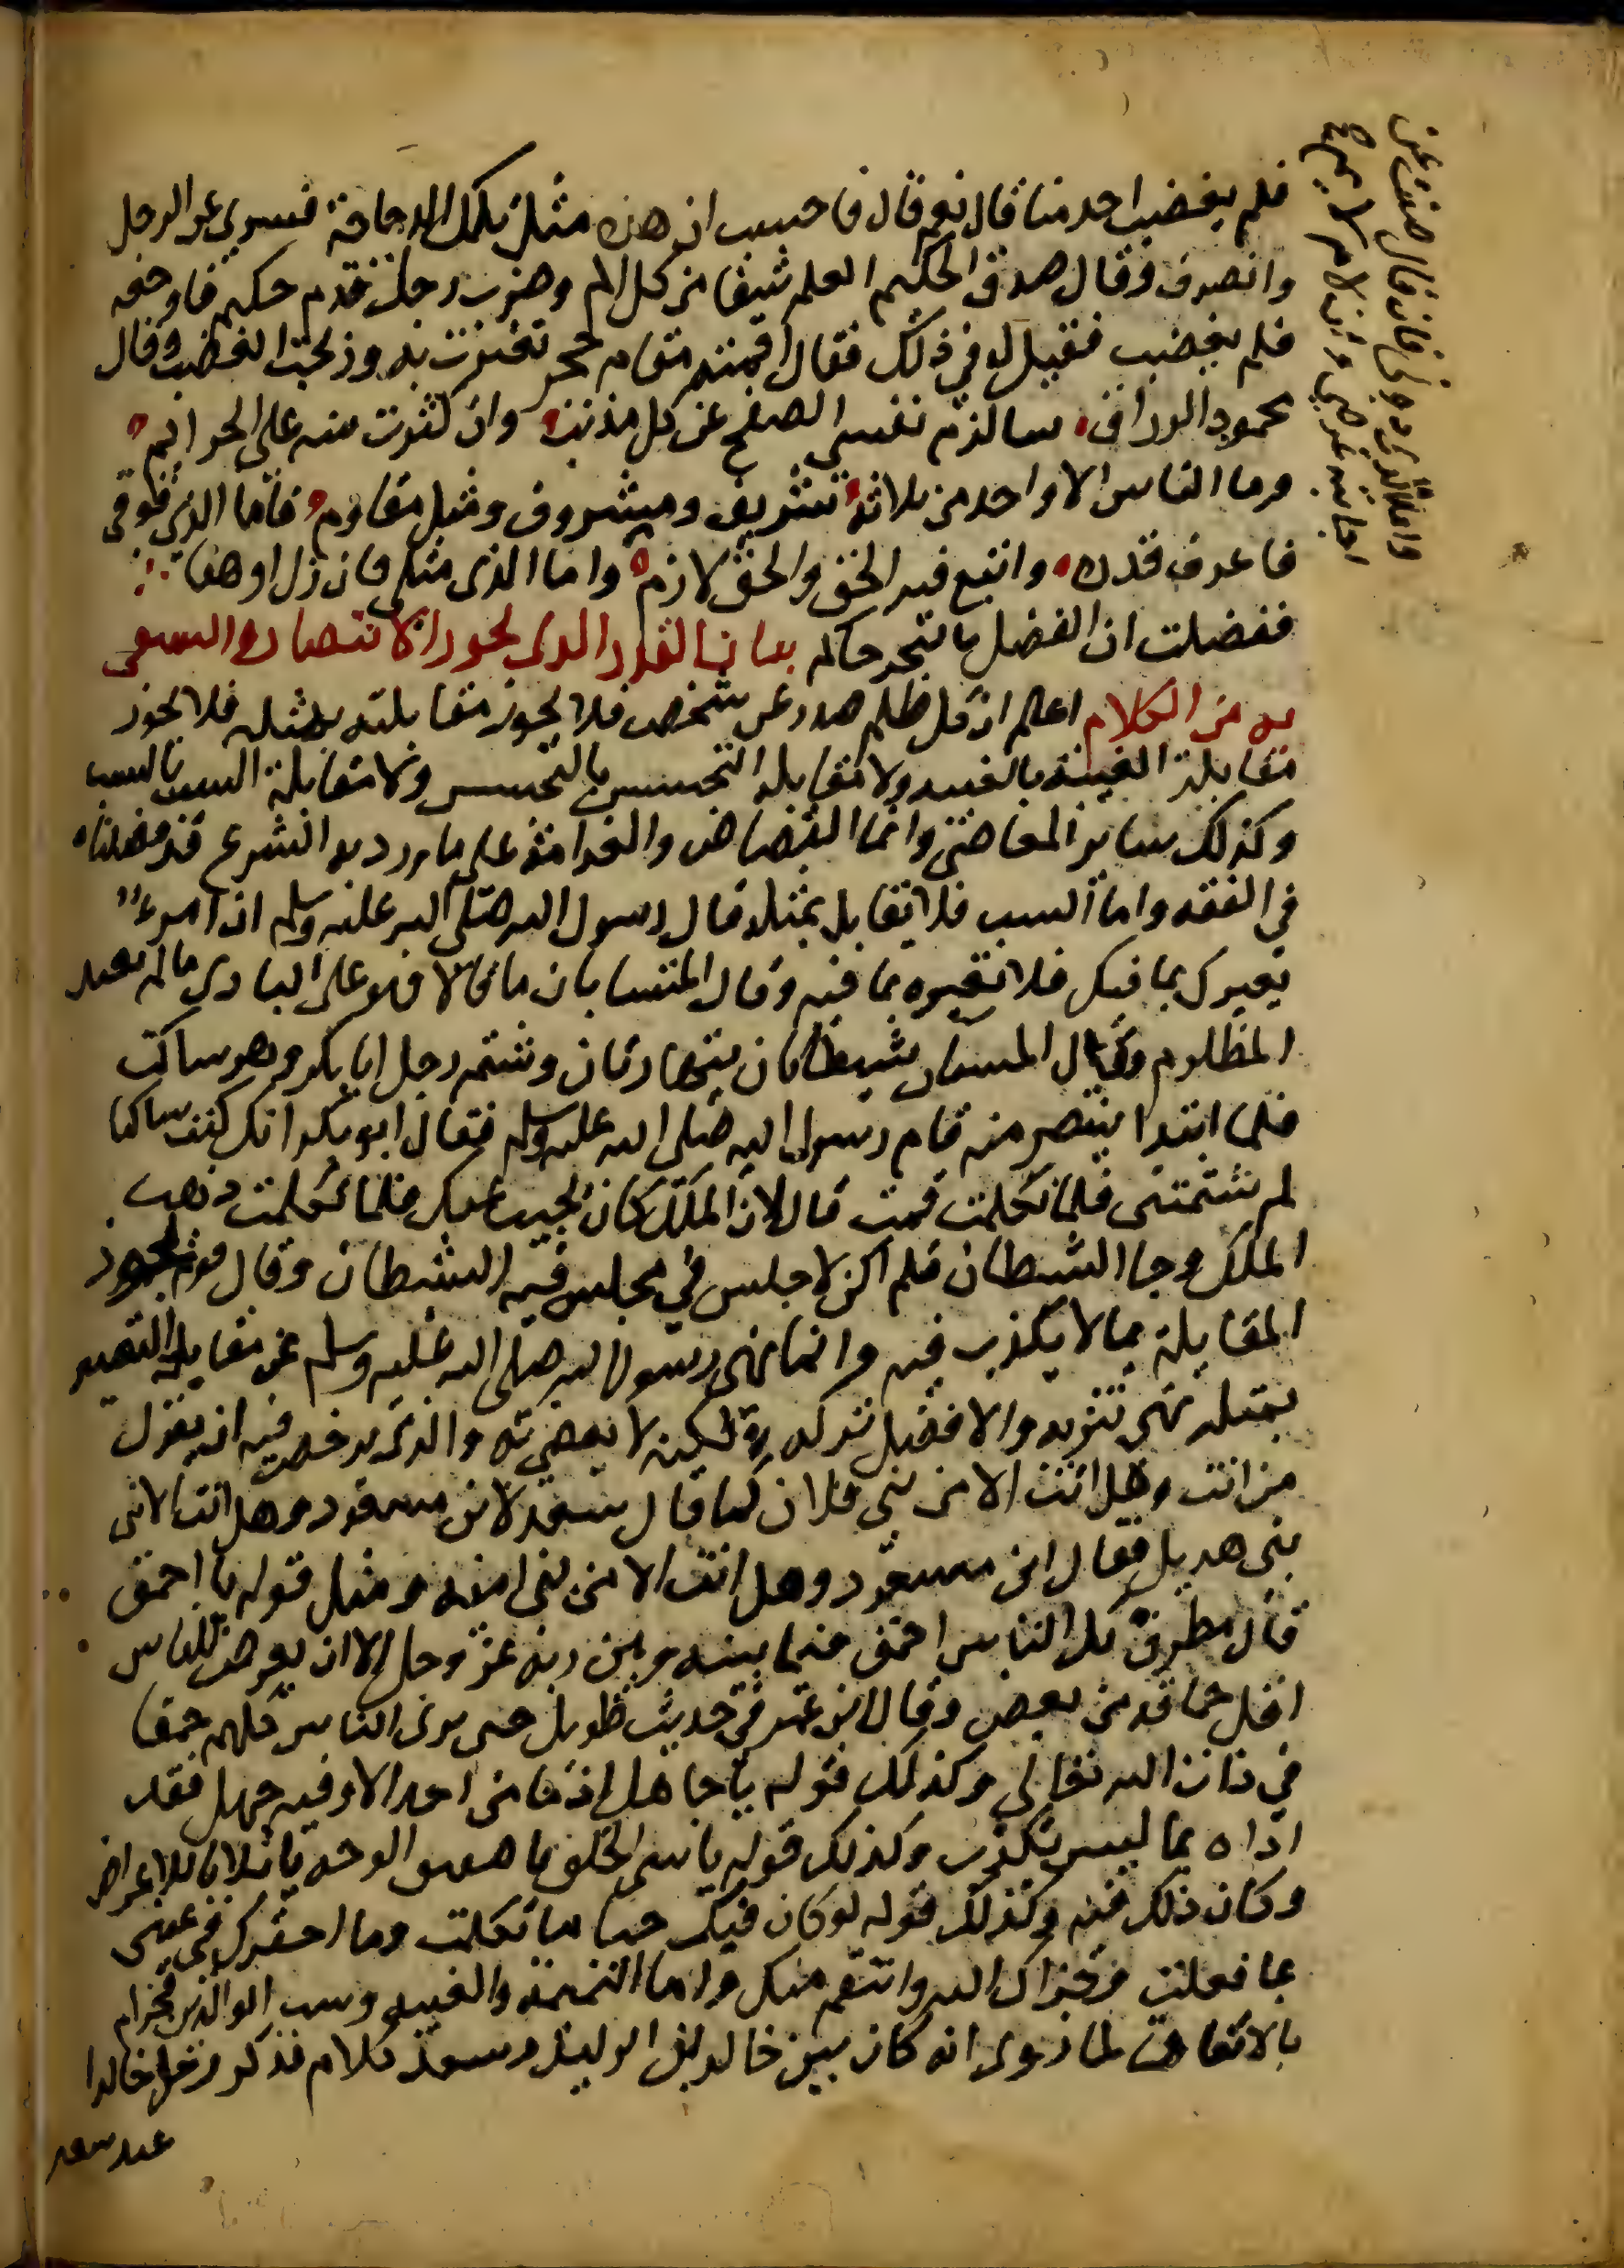 فلم يغضب احد منا قال نعم قال فاحسب ان هذه مثل تلك الدجاجة فسري عن الرجل
وانصرف وقال صدق الحكيم الحلم شفا من كل الم وضرب رجل قدم حكيم فاوجعه
فلم يغضب فقيل له في ذلك فقال اقمته مقام حجر تعثرت به وذبحت الغضب وقال
محمود الوراق سالزم نفسي الصفح عن كل مذنب وان كثرت منه علي الجرائم
وما الناس الا واحد من ثلاثة شريف ومشروف ومثل مقاوم فاما الذي فوقي
فاعرف قدره واتبع فيه الحق والحق لازم واما الذي مثلي فان زل او هفا
تفضلت ان الفضل بالحر حاكم بيان القدر الذي يجوز الانتصار والتشفي
به من الكلام اعلم ان كل ظلم صدر عن شخص فلا يجوز مقابلته بمثله فلا يجوز
مقابلة الغيبة بالغيبة ولا مقابلة التجسس بالتجسس ولا مقابلة السب بالسب
وكذلك ساير المعاصي وانما القصاص والغرامة على ما ورد به الشرع قد فصلناه
في الفقه واما السب فلا يقابل بمثله قال رسول الله صلى الله عليه وسلم ان امرء
يعيرك بما فيك فلا تعيره بما فيه وقال المتسابان ما قالا فهو على البادي ما لم يعتد
المظلوم وقال المستبان شيطانان يتهاتران وشتم رجل ابا بكر وهو ساكت
فلما ابتدا ينتصر منه قام رسول الله صلى الله عليه وسلم فقال ابو بكر انك كنت ساكتا
لم شتمتني فلما تكلمت قمت قال لان الملك كان يجيب عنك فلما تكلمت ذهب
الملك وجا الشيطان فلم اكن لاجلس في مجلس فيه الشيطان وقال قوم يجوز
المقابلة بما لا يكذب فيه وانما نهى رسول الله صلى الله عليه وسلم عن مقابلة التعيير
بمثله نهي تنزيه والافضل تركه ولكنه لا يعصي به والذي يرخص فيه ان يقول
من انت وهل انت الا من بني فلان كما قال سعد لابن مسعود وهل انت الا من
بني هديل فقال ابن مسعود وهل انت الا من بني امية ومثل قوله يا احمق
قال مطرف كل الناس احمق فيما بينه وبين ربه عز وجل الا ان بعض الناس
اقل حماقة من بعض وقال ابن عمر في حديث طويل حتى يرى الناس كلهم حمقا
في ذات الله تعالى وكذلك قوله يا جاهل اذ ما من احد الا وفيه جهل فقد
اذاه بما ليس بكذب وكذلك قوله يا سيء الخلق يا صفيق الوجه يا ثلابا للاعراض
وكان ذلك فيه وكذلك قوله لو كان فيك حيا ما تكلمت وما احقرك في عيني
بما فعلت وجزاك الله وانتقم منك واما النميمة والغيبة وسب الوالدين فحرام
بالاتفاق لما روي انه كان بين خالد بن الوليد وسعد كلام فذكر رجل خالدا
عند سعد
واما الذي دوني فان قال صنت عن
اجابته عرضي وان لام لايم